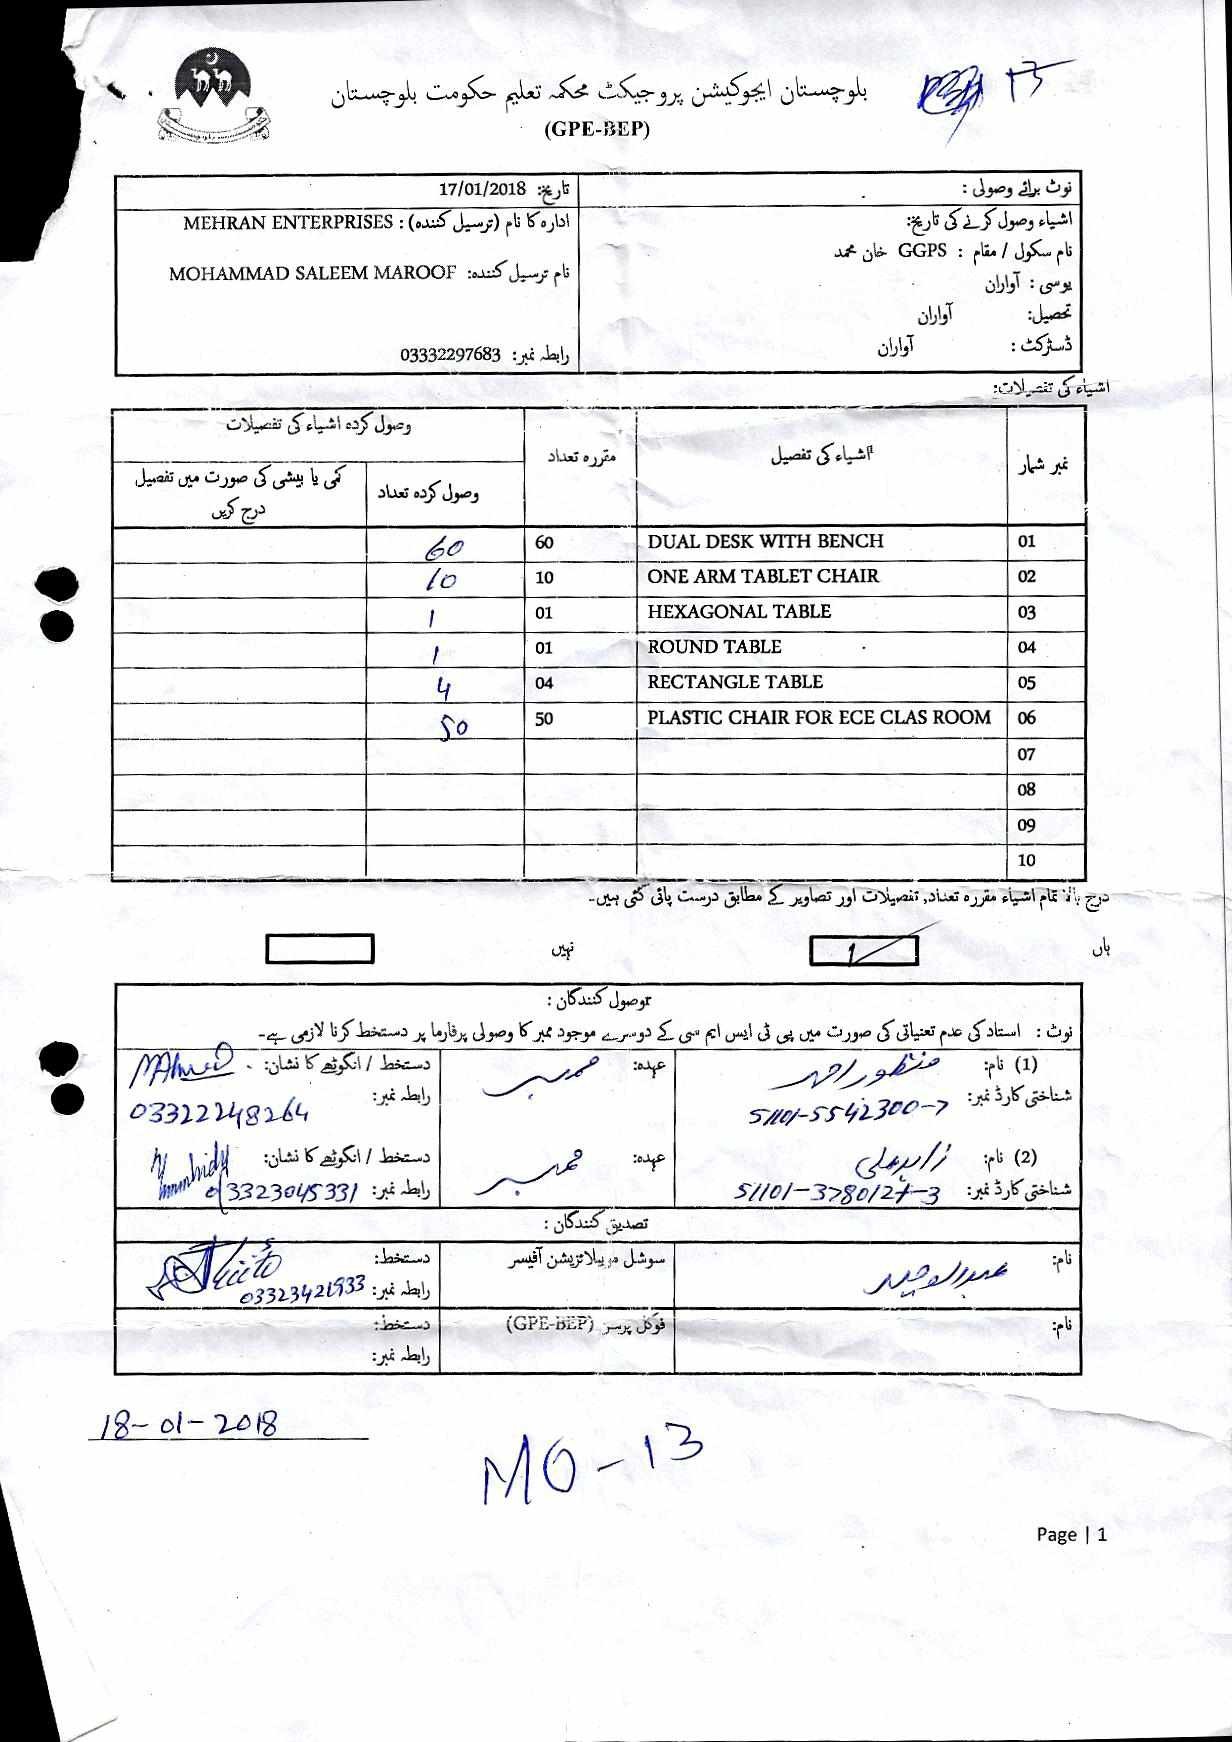 بلوچستان ایجوکیشن پروجیکٹ محکمہ تعلیم حکومت بلوچستان
(GPE-BEP)
13
نوٹ برائے وصولی :
تاریخ: 17/01/2018
اشیاء وصول کرنے کی تاریخ:
ادارہ کا نام (ترسیل کنندہ) : MEHRAN ENTERPRISES
نام سکول / مقام : GGPS خان محمد
نام ترسیل کنندہ: MOHAMMAD SALEEM MAROOF
یو سی : آواران
تحصیل: آواران
ڈسٹرکٹ : آواران
رابطہ نمبر: 03332297683
اشیاء کی تفصیلات:
نمبر شمار اشیاء کی تفصیل مقررہ تعداد وصول کردہ اشیاء کی تفصیلات
وصول کردہ تعداد کمی یا بیشی کی صورت میں تفصیل
درج کریں
01 DUAL DESK WITH BENCH 60 60
02 ONE ARM TABLET CHAIR 10 10
03 HEXAGONAL TABLE 01 1
04 ROUND TABLE 01 1
05 RECTANGLE TABLE 04 4
06 PLASTIC CHAIR FOR ECE CLAS ROOM 50 50
07
08
09
10
درج بالا تمام اشیاء مقررہ تعداد, تفصیلات اور تصاویر کے مطابق درست پائی گئی ہیں۔
ہاں نہیں
وصول کنندگان :
نوٹ : استاد کی عدم تعنیاتی کی صورت میں پی ٹی ایس ایم سی کے دوسرے موجود ممبر کا وصولی پرفارما پر دستخط کرنا لازمی ہے۔
(1) نام: منظور احمد عہدہ: ممبر دستخط / انگوٹھے کا نشان: MAhmed
شناختی کارڈ نمبر: 51101-5542300-7 رابطہ نمبر: 03322248264
(2) نام: زاہد علی عہدہ: ممبر دستخط / انگوٹھے کا نشان:
شناختی کارڈ نمبر: 51101-3780127-3 رابطہ نمبر: 03323045331
تصدیق کنندگان :
نام: عبدالوحید سوشل موبیلائزیشن آفیسر دستخط:
رابطہ نمبر: 03323421933
نام: فوکل پرسن (GPE-BEP) دستخط:
رابطہ نمبر:
18-01-2018
MO-13
Page | 1